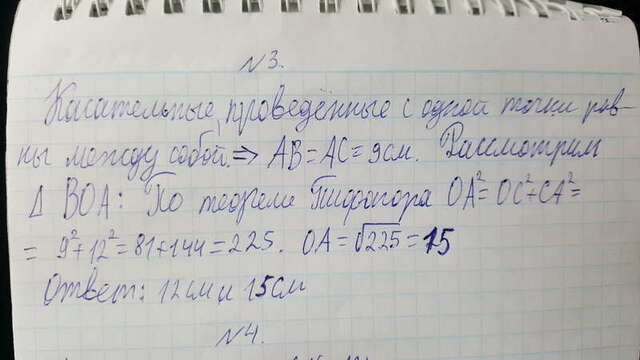 N3.
Касательные проведённые с одной точки рав-
ны между собой. => AB=AC=9см. Рассмотрим
Δ BOA: По теореме Пифагора OA²=OC²+CA²=
= 9²+12²=81+144=225. OA=√225=15
Ответ: 12см и 15см
N4.